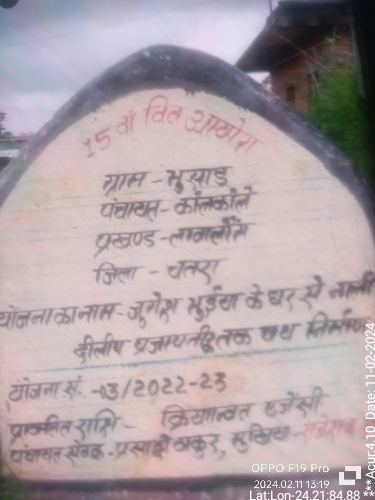 15 वां वित आयोग
ग्राम - भुसाड
पंचायत - कोलकोले
प्रखण्ड - लावालौंग
जिला - चतरा
योजना का नाम - जुगेश भुईया के घर से नाली
दीलीप प्रजापति तक पथ निर्माण
योजना सं. - 03/2022-23
प्राक्कलित राशि - क्रियान्वत एजेंसी
पंचायत सेवक - ठाकुर, मुखिया
OPPO F19 Pro
2024.02.11 13:19
Lat:Lon-24.21:84.88
**:Acur:4.10 Date:11-02-2024